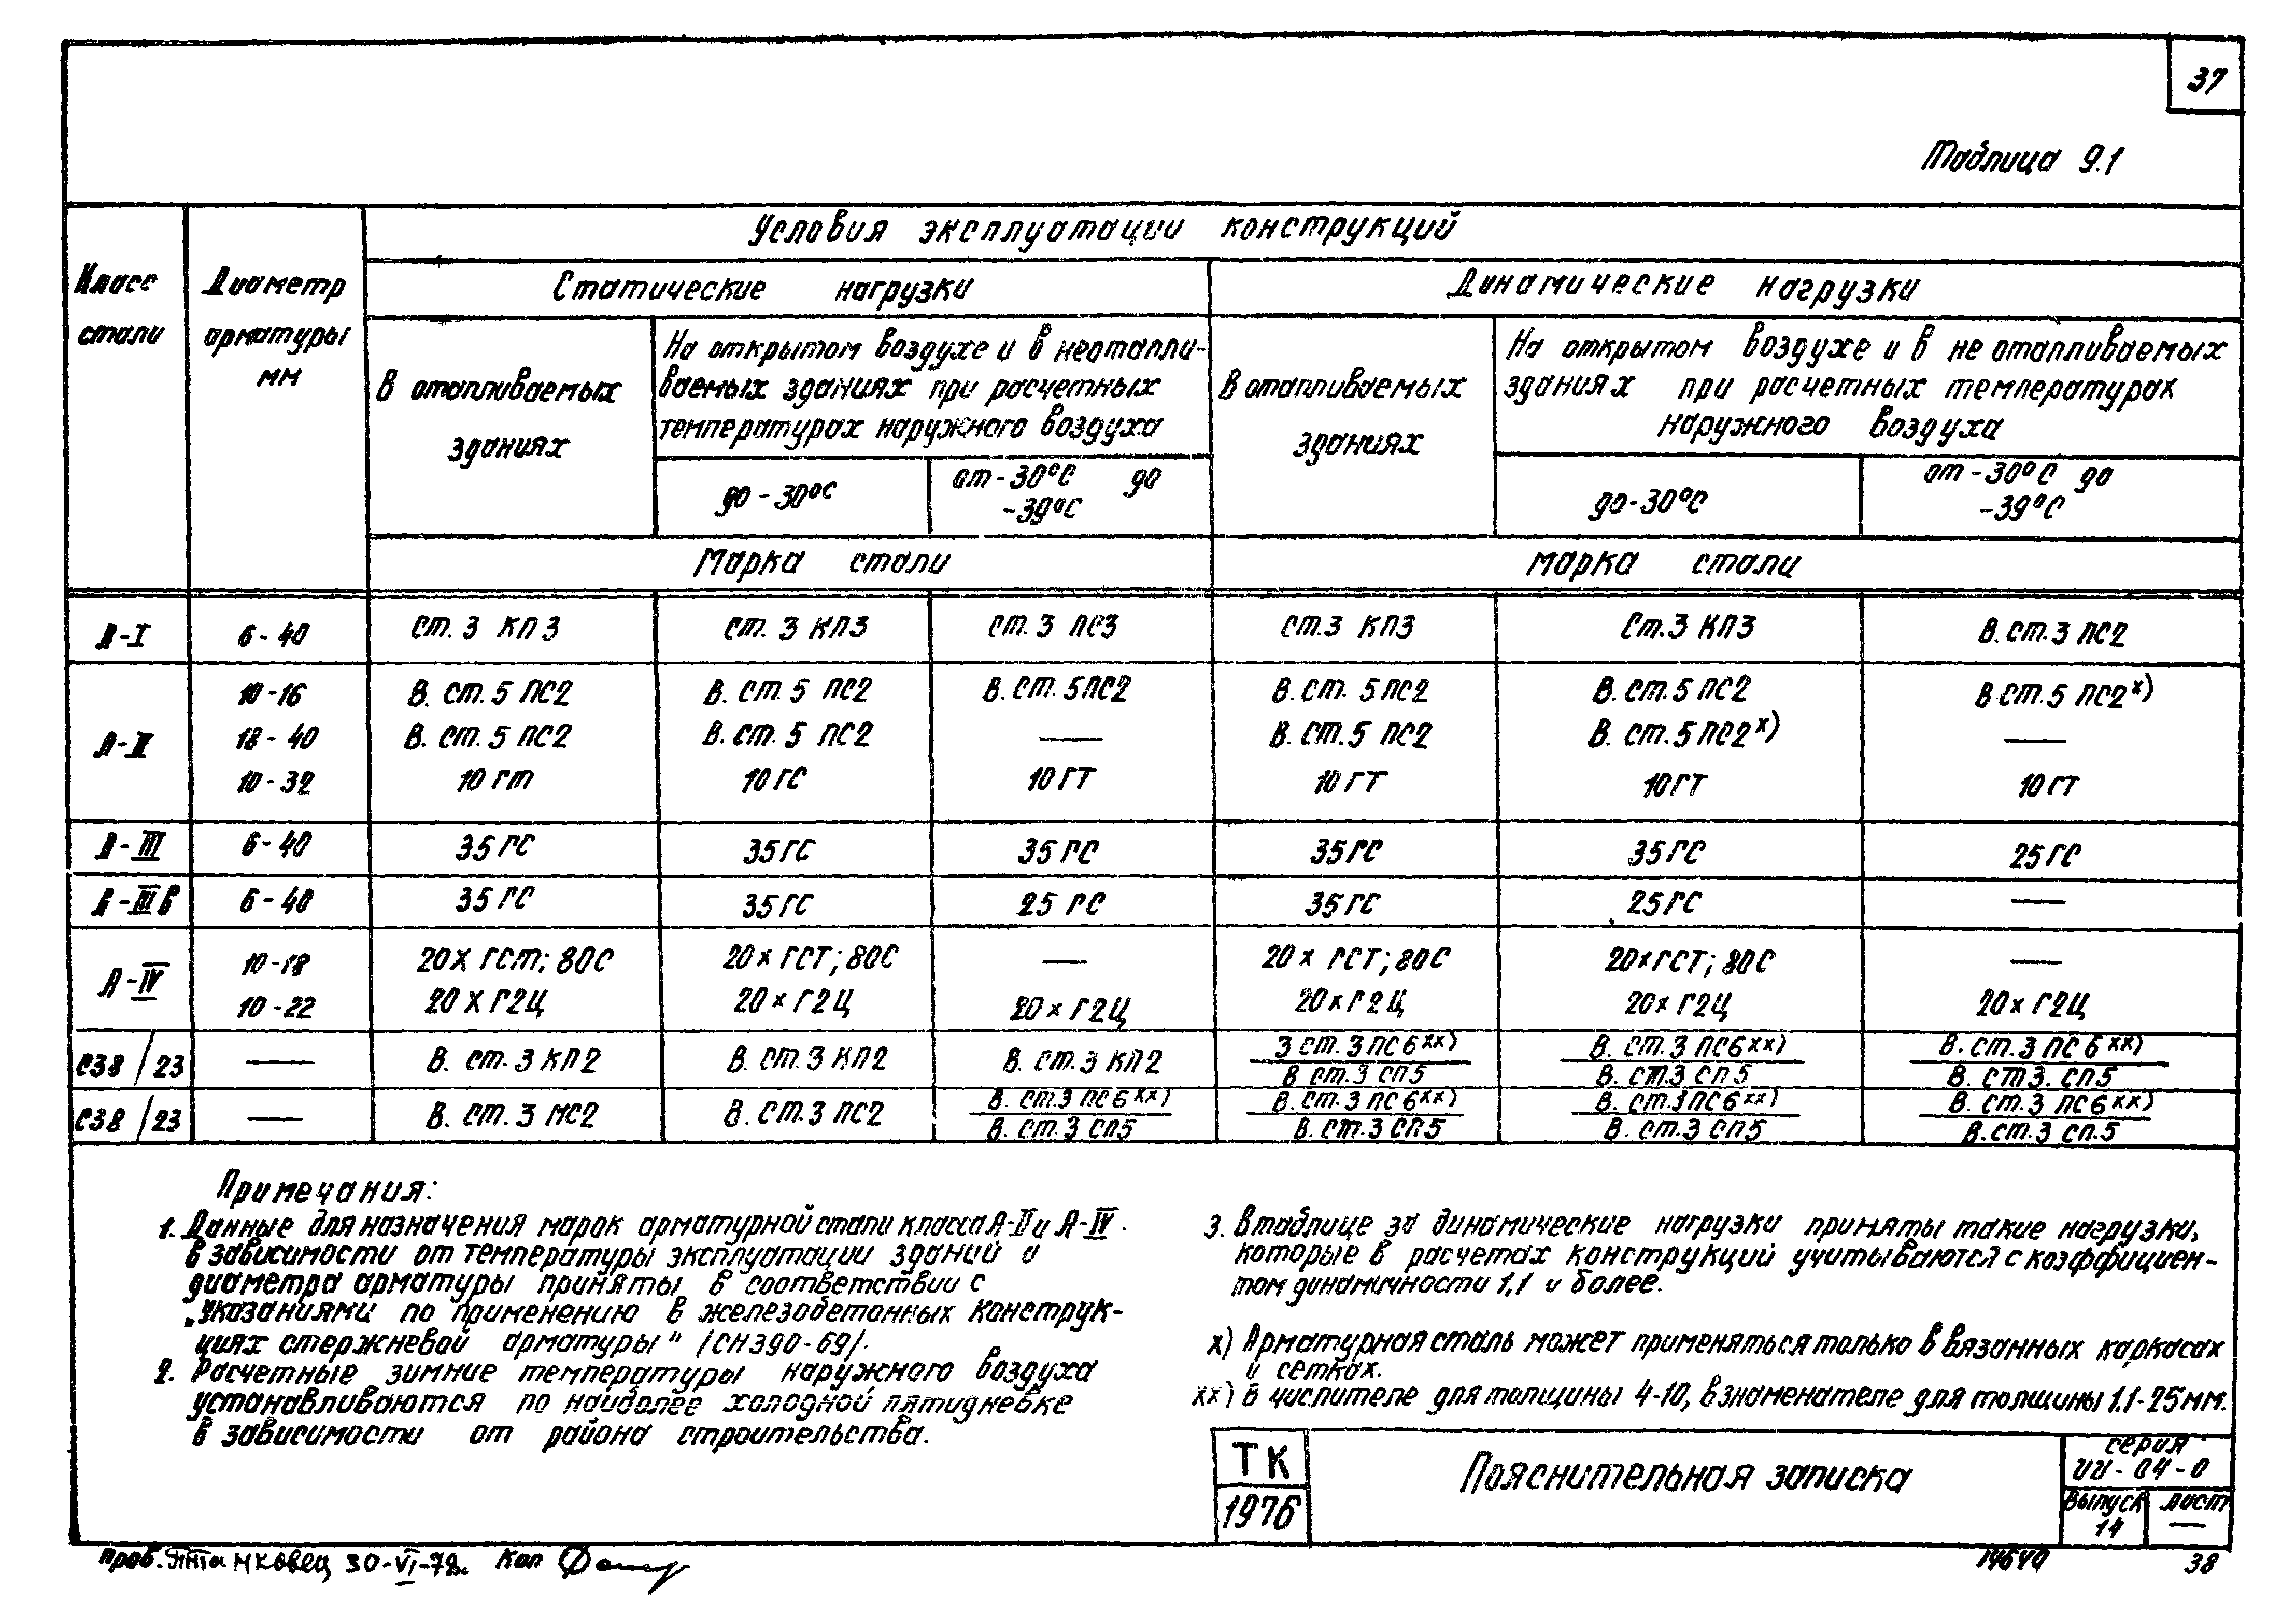 37
Таблица 9.1
Условия эксплуатации конструкций
Класс стали
Диаметр арматуры мм
Статические нагрузки
Динамические нагрузки
В отапливаемых зданиях
На открытом воздухе и в неотапли-
ваемых зданиях при расчетных
температурах наружного воздуха
до -30°С
от -30°С до -39°С
В отапливаемых зданиях
На открытом воздухе и в не отапливаемых
зданиях при расчетных температурах
наружного воздуха
до -30°С
от -30°С до -39°С
Марка стали
Марка стали
А-I 6-40 Ст. 3 КП 3 Ст. 3 КП3 Ст. 3 ПС3 Ст.3 КП3 Ст.3 КП3 В.Ст.3 ПС2
А-II
10-16 В. Ст. 5 ПС2 В. Ст. 5 ПС2 В. Ст. 5ПС2 В. Ст. 5ПС2 В. Ст.5 ПС2 В Ст.5 ПС2х)
18-40 В. Ст. 5 ПС2 В. Ст. 5 ПС2 — В. Ст.5 ПС2 В. Ст.5ПС2х) —
10-32 10 ГТ 10ГС 10ГТ 10 ГТ 10ГТ 10 ГТ
А-III 6-40 35 ГС 35ГС 35 ГС 35ГС 35ГС 25ГС
А-IIIв 6-40 35 ГС 35ГС 25 ГС 35ГС 25ГС —
А-IV
10-18 20Х ГСТ; 80С 20х ГСТ; 80С — 20х ГСТ; 80С 20хГСТ; 80С —
10-22 20 Х Г2Ц 20х Г2Ц 20х Г2Ц 20х Г2Ц 20х Г2Ц 20х Г2Ц
С38/23 — В. Ст. 3 КП2 В. Ст.3 КП2 В. Ст.3 КП2 3 Ст. 3 ПС6хх) В. Ст.3 ПС6хх) В. Ст.3 ПС 6хх)
В Ст.3 СП5 В. СТ.3 СП5 В. СТ3. СП5
С38/23 — В. Ст. 3 МС2 В. Ст.3 ПС2 В. Ст.3 ПС6хх) В. Ст.3 ПС6хх) В. Ст.3ПС6хх) В. Ст.3 ПС6хх)
В. Ст.3 СП5 В. Ст.3 СП5 В. Ст.3 СП5 В.Ст.3 СП.5
Примечания:
1. Данные для назначения марок арматурной стали класса А-II и А-IV.
в зависимости от температуры эксплуатации зданий и
диаметра арматуры приняты в соответствии с
„Указаниями по применению в железобетонных конструк-
циях стержневой арматуры" /СН390-69/.
2. Расчетные зимние температуры наружного воздуха
устанавливаются по наиболее холодной пятидневке
в зависимости от района строительства.
3. В таблице за динамические нагрузки приняты такие нагрузки,
которые в расчетах конструкций учитываются с коэффициен-
том динамичности 1,1 и более.
х) Арматурная сталь может применяться только в вязанных каркасах
и сетках.
хх) В числителе для толщины 4-10, в знаменателе для толщины 11-25мм.
ТК
1976
Пояснительная записка
Серия
ИИ-04-0
Выпуск
14
Лист
—
Пров. 30-VI-78г. Кап
14640
38